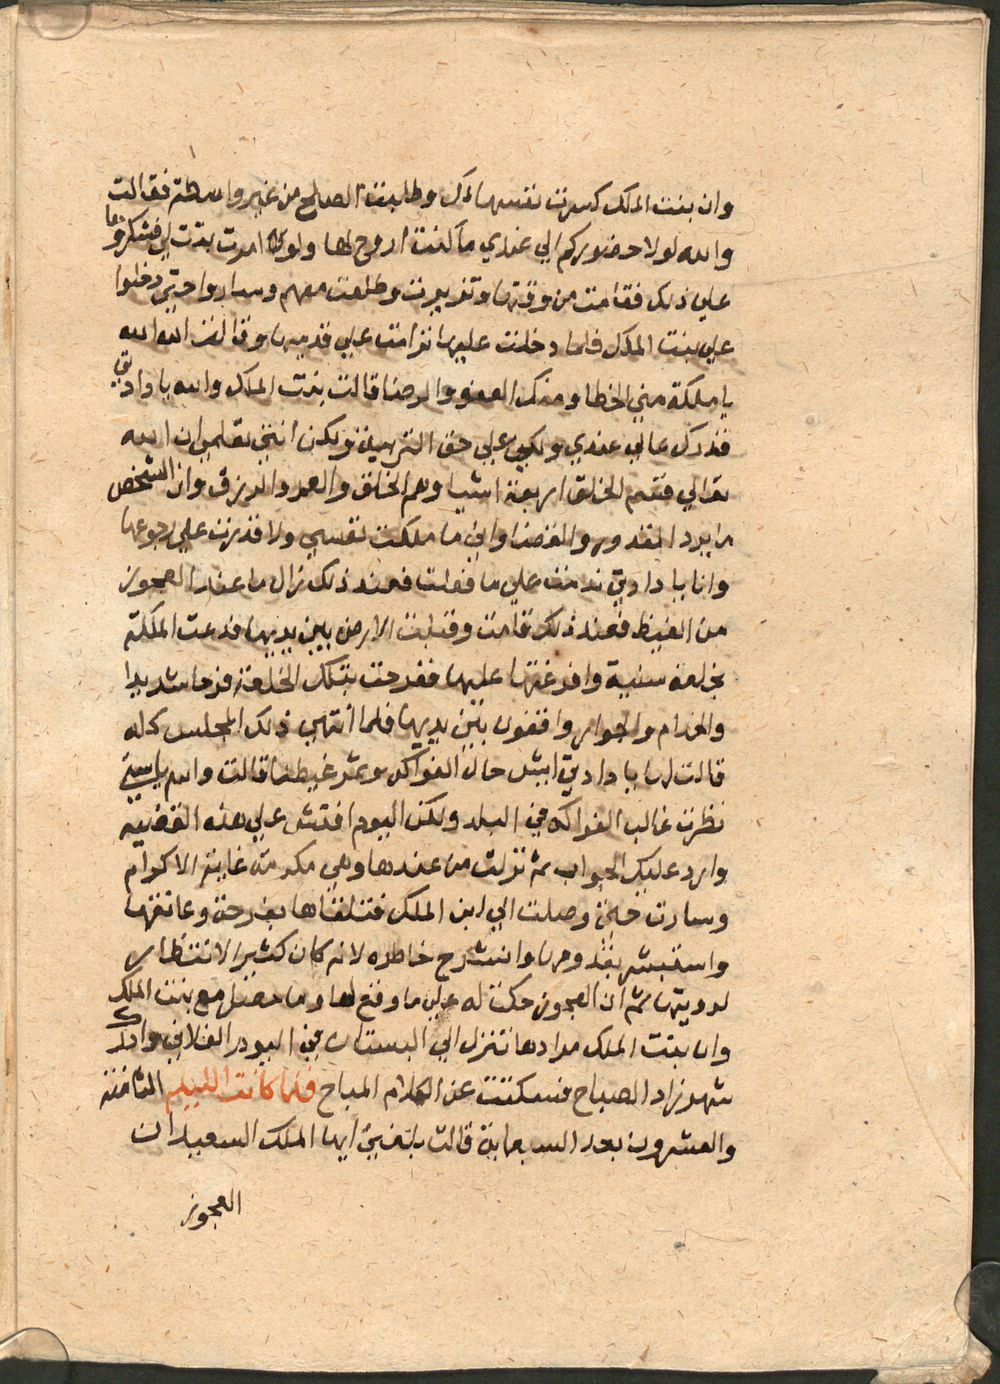 وان بنت الملك كسرت نفسها لك وطلبت الصلح من غير واسطة فقالت
والله لولا حضوركم الي عندي ما كنت اروح لها ولو امرت بقتلي فشكروها
علي ذلك فقامت من وقتها وتزيرت وطلعت معهم وساروا حتي دخلوا
علي بنت الملك فلما دخلت عليها ترامت علي قدميها وقالت الله الله
يا ملكة مني الخطا ومنك العفو والرضا قالت بنت الملك والله يا دادتي
قدرك عالي عندي ولكي علي حق التربية ولكن انتي تعلمي ان الله
تعالي قسم الخلق اربعة اشيا وهم الخلق والعمر والرزق وان الشخص
ما يرد المقدور والقضا واني ما ملكت نفسي ولا قدرت علي رجوعها
وانا يا دادتي ندمت علي ما فعلت فعند ذلك زال ما عند العجوز
من الغيظ فعند ذلك قامت وقبلت الارض بين يديها فدعت الملكة
بخلعة سنية وافرغتها عليها ففرحت بتلك الخلعة فرحا شديدا
والخدام والجوار واقفون بين يديها فلما انتهي ذلك المجلس كله
قالت لها يا دادتي ايش حال الفواكه وثمر غيطنا قالت والله يا ستي
نظرت غالب الفواكه في البلد ولكن اليوم افتش علي هذه القضيه
وارد عليك الجواب ثم نزلت من عندها وهي مكرمة غاية الاكرام
وسارت حتي وصلت الي ابن الملك فتلقاها بفرحة وعانقها
واستبشر بقدومها وانشرح خاطره لانه كان كثير الانتظار
لرويتها ثم ان العجوز حكت له علي ما وقع لها وما حصل مع بنت الملك
وان بنت الملك مرادها تنزل الي البستان في اليوم الفلاني وادرك
شهرزاد الصباح فسكتت عن الكلام المباح فلما كانت الليلة الثامنة
والعشرون بعد السبعماية قالت بلغني ايها الملك السعيد ان
العجوز